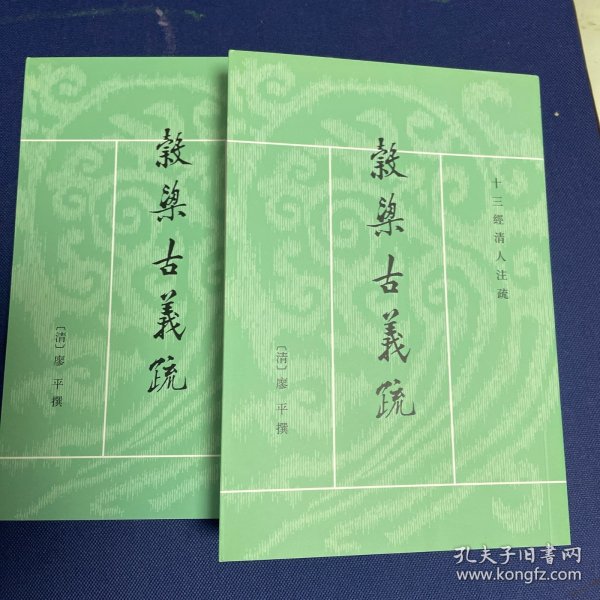 穀梁古義疏
〔清〕廖平撰
十三經清人注疏
穀梁古義疏
〔清〕廖平撰
孔夫子旧书网
www.kongfz.com